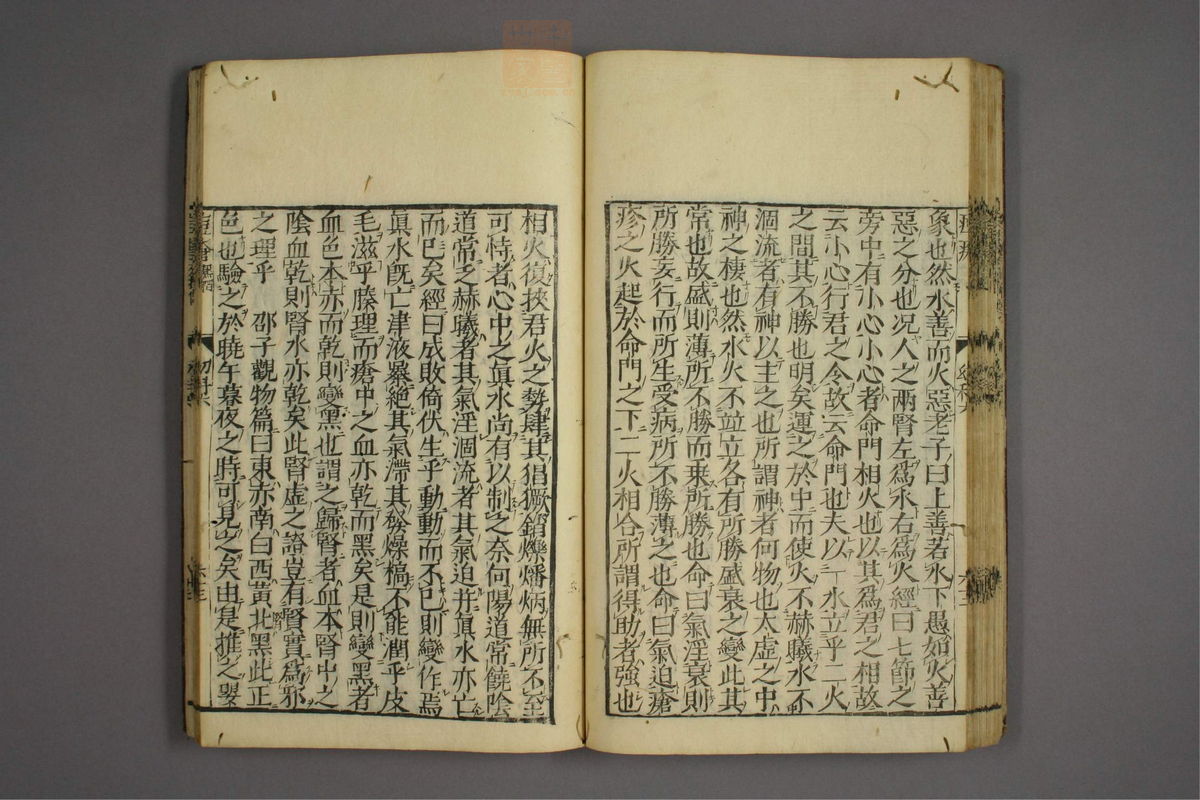 象也然水善而火惡老子曰上善若水下愚如火善
惡之分也況人之兩腎左爲水右爲火經曰七節之
旁中有小心小心者命門相火也以其爲君之相故
云小心行君之令故云命門也夫以一水立乎二火
之間其不勝也明矣運之於中而使火不赫曦水不
涸流者有神以主之也所謂神者何物也太虛之中
神之棲也然水火不竝立各有所勝盛衰之變此其
常也故盛則薄所不勝而乗所勝也命曰氣淫衰則
所勝妄行而所生受病所不勝薄之也命曰氣迫瘡
疹之火起於命門之下二火相合所謂得助者強也
相火復挾君火之勢肆其猖獗銷爍燔炳無所不至
可恃者心中之眞水尚有以制之奈何陽道常饒陰
道常乏赫曦者其氣淫涸流者其氣迫幷眞水亦亡
而已矣經曰成敗倚伏生乎動動而不已則變作焉
眞水旣亡津液暴絶其氣滯其發燥槁不能潤乎皮
毛滋乎腠理而瘡中之血亦乾而黑矣是則變黑者
血色本赤而乾則變黑也謂之歸腎者血本腎中之
陰血乾則腎水亦乾矣此腎虛之證豈有腎實爲邪
之理乎　邵子觀物篇曰東赤南白西黃北黑此正
色也驗之於曉午暮夜之時可見之矣由是推之嬰